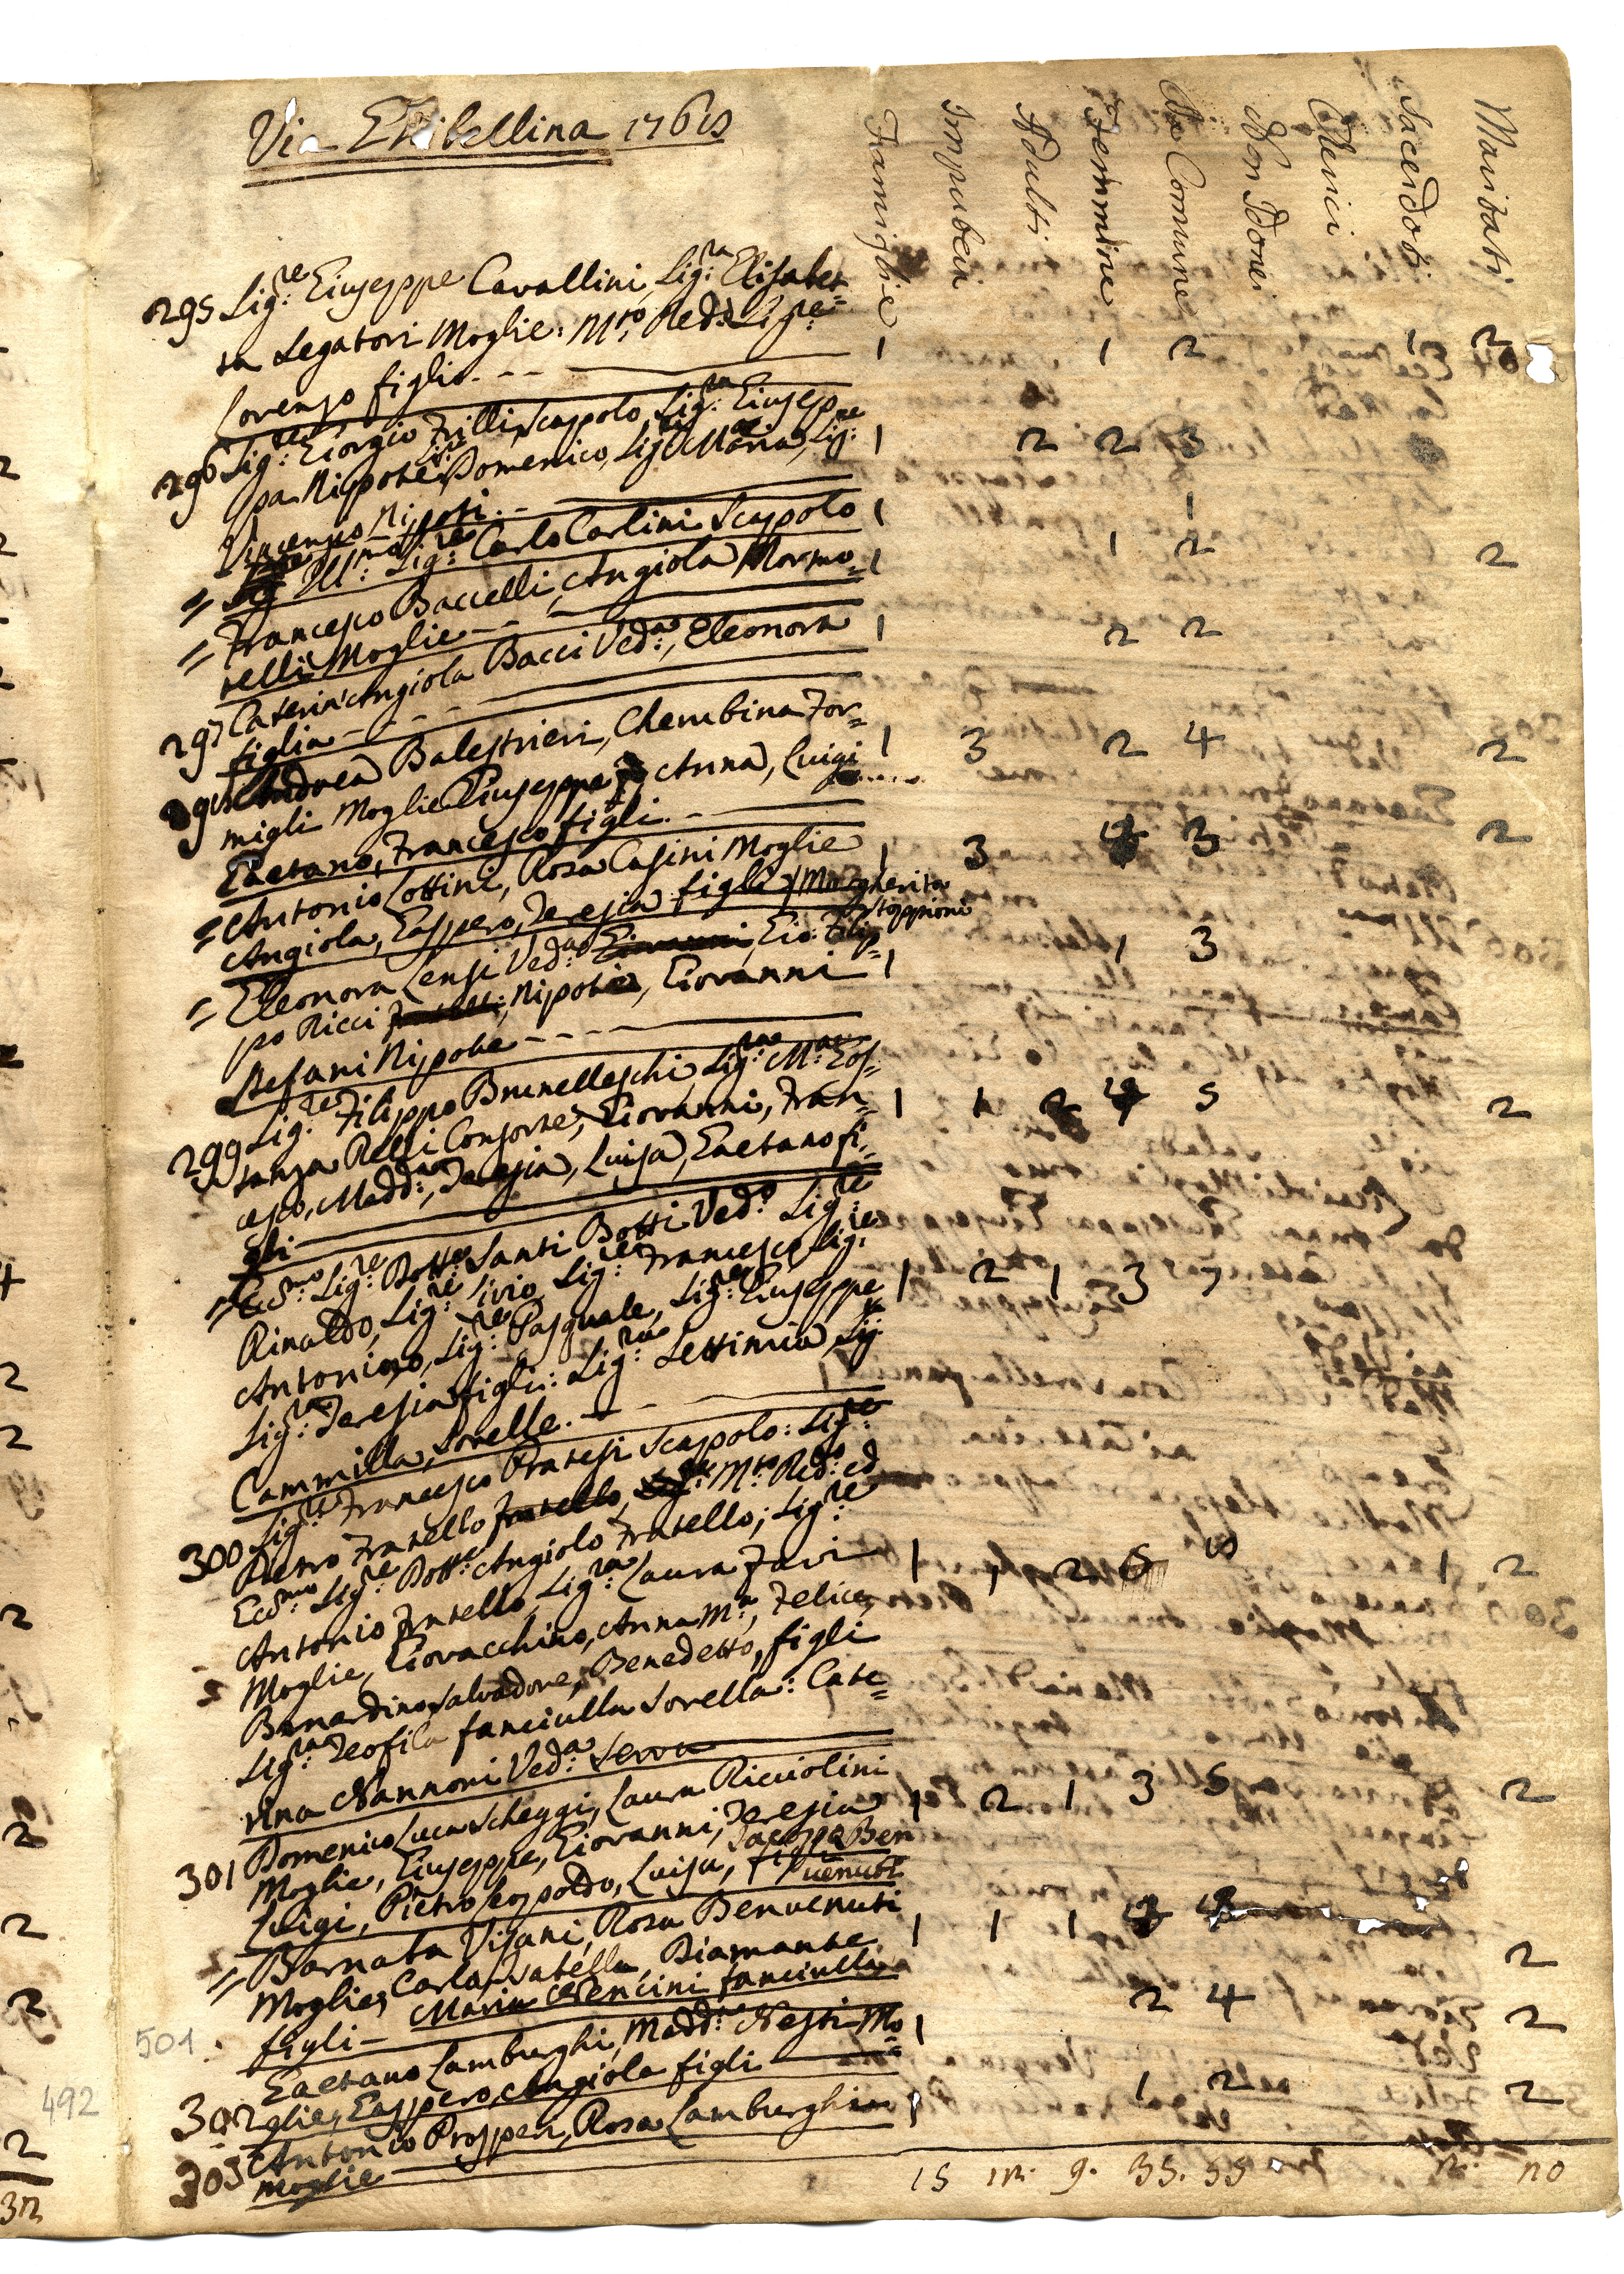 Via Ghibellina 1768
Famiglie
Impuberi
Adulti
Femmine
Da Comunne
Non Idonei
Clerici
Sacerdoti
Maritati
295 Sig:re Giuseppe Cavallini, Sig:ra Elisabet=
ta Legatori Moglie: M:to Red: Sig:re
Lorenzo figlio. 1 1 2 1 2
296 Sig:re Giorgio Trilli Scapolo, Sig:ra Giusep=
pa Nipote, Domenico, Sig:ra Maria, Sig:re 1 2 2 3
Vincenzo Nipoti.
= Ill:mo Sig:re Carlo Carlini Scapolo 1 1
= Francesco Baccelli, Angiola Mormo= 1 1 2 2
relli Moglie
297 Caterin'Angiola Bacci Ved:a, Eleonora 1 2 2
figlia
298 Andrea Balestrieri, Cherubina For=
migli Moglie Giuseppe Anna, Luigi 1 3 2 4 2
Gaetano, Francesco figli.
= Antonio Lottini, Rosa Casini Moglie 1 3 3 2
Angiola, Gasppero, Teresia figli Margherita
Stoppioni
= Eleonora Lensi Ved:a Gio: Filip=
po Ricci Nipote, Giovanni 1 1 3
Stefani Nipote
299 Sig:re Filippo Brunelleschi, Sig:ra M:a Cos=
tanza Relli Consorte, Giovanni, Fran= 1 1 2 4 5 2
cesco, Madd:a, Teresia, Luisa, Gaetano fi=
gli
= Ecc:mo Sig:re Dott:re Santi Botti Ved:o Sig:re
Rinaldo, Sig:re Livio, Sig:re Francesco, Sig:re 1 2 1 3 7
Antonino, Sig:re Pasquale, Sig:re Giuseppe
Sig:ra Teresia figli: Sig:ra Settimia Sig:ra
Cammilla, Sorelle.
300 Sig:re Francesco Pratesi Scapolo: Sig:re
Pietro Fratello Fratello, M:to Red:o ed
Ecc:mo Sig:re Dott:re Angiolo Fratello; Sig:re
Antonio Fratello, Sig:ra Laura Favi 1 1 2 5 8 1 2
Moglie, Giovacchino, Anna M:a, Felice,
Bernardino, Salvadore, Benedetto, figli
Sig:ra Teofila fanciulla Sorella: Cate=
rina Nannoni Ved:a Serva
301 Domenico Luca Scheggi, Laura Ricciolini
Moglie, Giuseppe, Giovanni, Teresia 1 2 1 3 5 2
Luigi, Pietro Leopoldo, Luisa, figli Jacoppo Ben
venuti
= Barnaba Visani, Rosa Benvenuti
Moglie, Carlo, Diamante 1 1 1 2
figli Maria Nencini fanciulla
Gaetano Lamburghi, Madd:a Nesti Mo= 1 2 4 2
302 glie, Gasppero, Angiola figli
303 Antonio Prosperi, Rosa Lamburghi 1 1 2 2
moglie
15 12. 9. 35. 55 2. 20
501
492